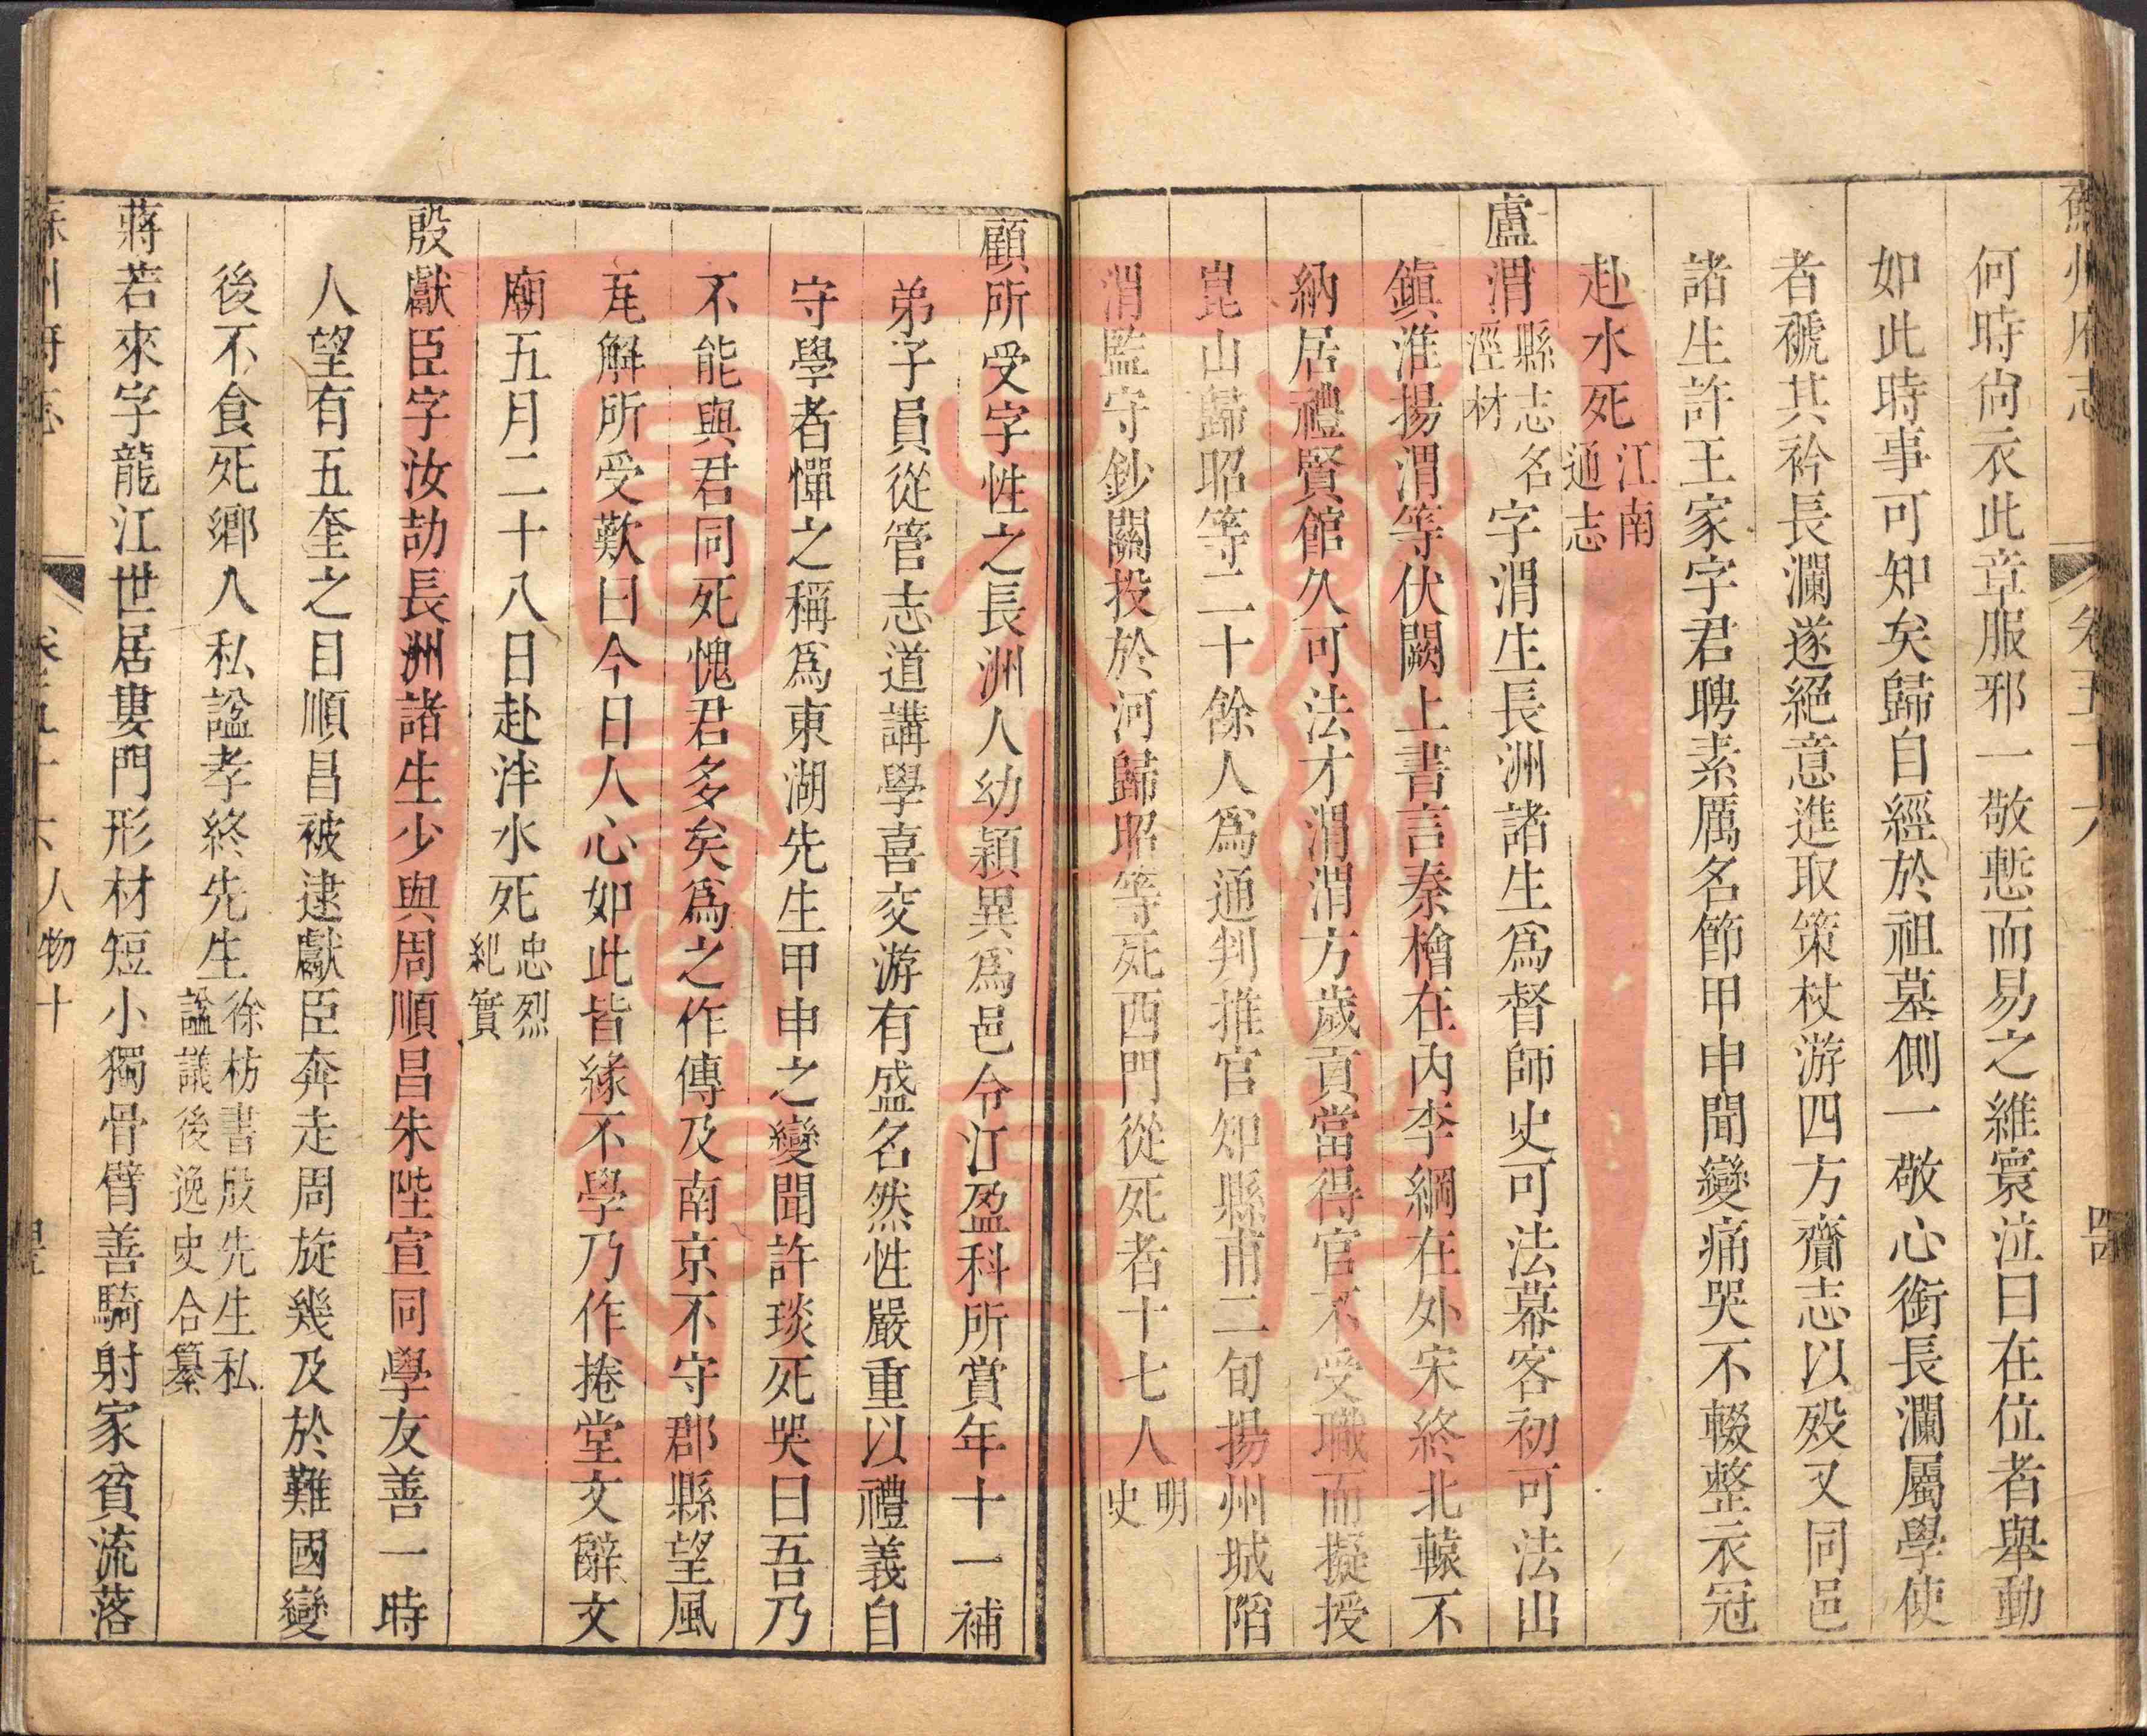 蘇州府志
卷五十六
何時尚衣此章服邪一敬慙而易之維寰泣曰在位者舉動
如此時事可知矣歸自經於祖墓側一敬心銜長瀾屬學使
者褫其衿長瀾遂絕意進取策杖游四方齎志以歿又同邑
諸生許王家字君聘素厲名節甲申聞變痛哭不輟整衣冠
赴水死江南通志
盧渭縣志名涇材字渭生長洲諸生爲督師史可法幕客初可法出
鎭淮揚渭等伏闕上書言秦檜在內李綱在外宋終北轅不
納居禮賢館久可法才渭渭方歲貢當得官不受職而擬授
崑山歸昭等二十餘人爲通判推官知縣甫二旬揚州城陷
渭監守鈔關投於河歸昭等死西門從死者十七人明史
顧所受字性之長洲人幼穎異爲邑令江盈科所賞年十一補
弟子員從管志道講學喜交游有盛名然性嚴重以禮義自
守學者憚之稱爲東湖先生甲申之變聞許琰死哭曰吾乃
不能與君同死愧君多矣爲之作傳及南京不守郡縣望風
瓦解所受歎曰今日人心如此皆緣不學乃作捲堂文辭文
廟五月二十八日赴泮水死忠烈紀實
殷獻臣字汝劼長洲諸生少與周順昌朱陛宣同學友善一時
人望有五奎之目順昌被逮獻臣奔走周旋幾及於難國變
後不食死鄉人私諡孝終先生徐枋書殷先生私諡議後逸史合纂
蔣若來字龍江世居婁門形材短小獨骨臂善騎射家貧流落
人物十